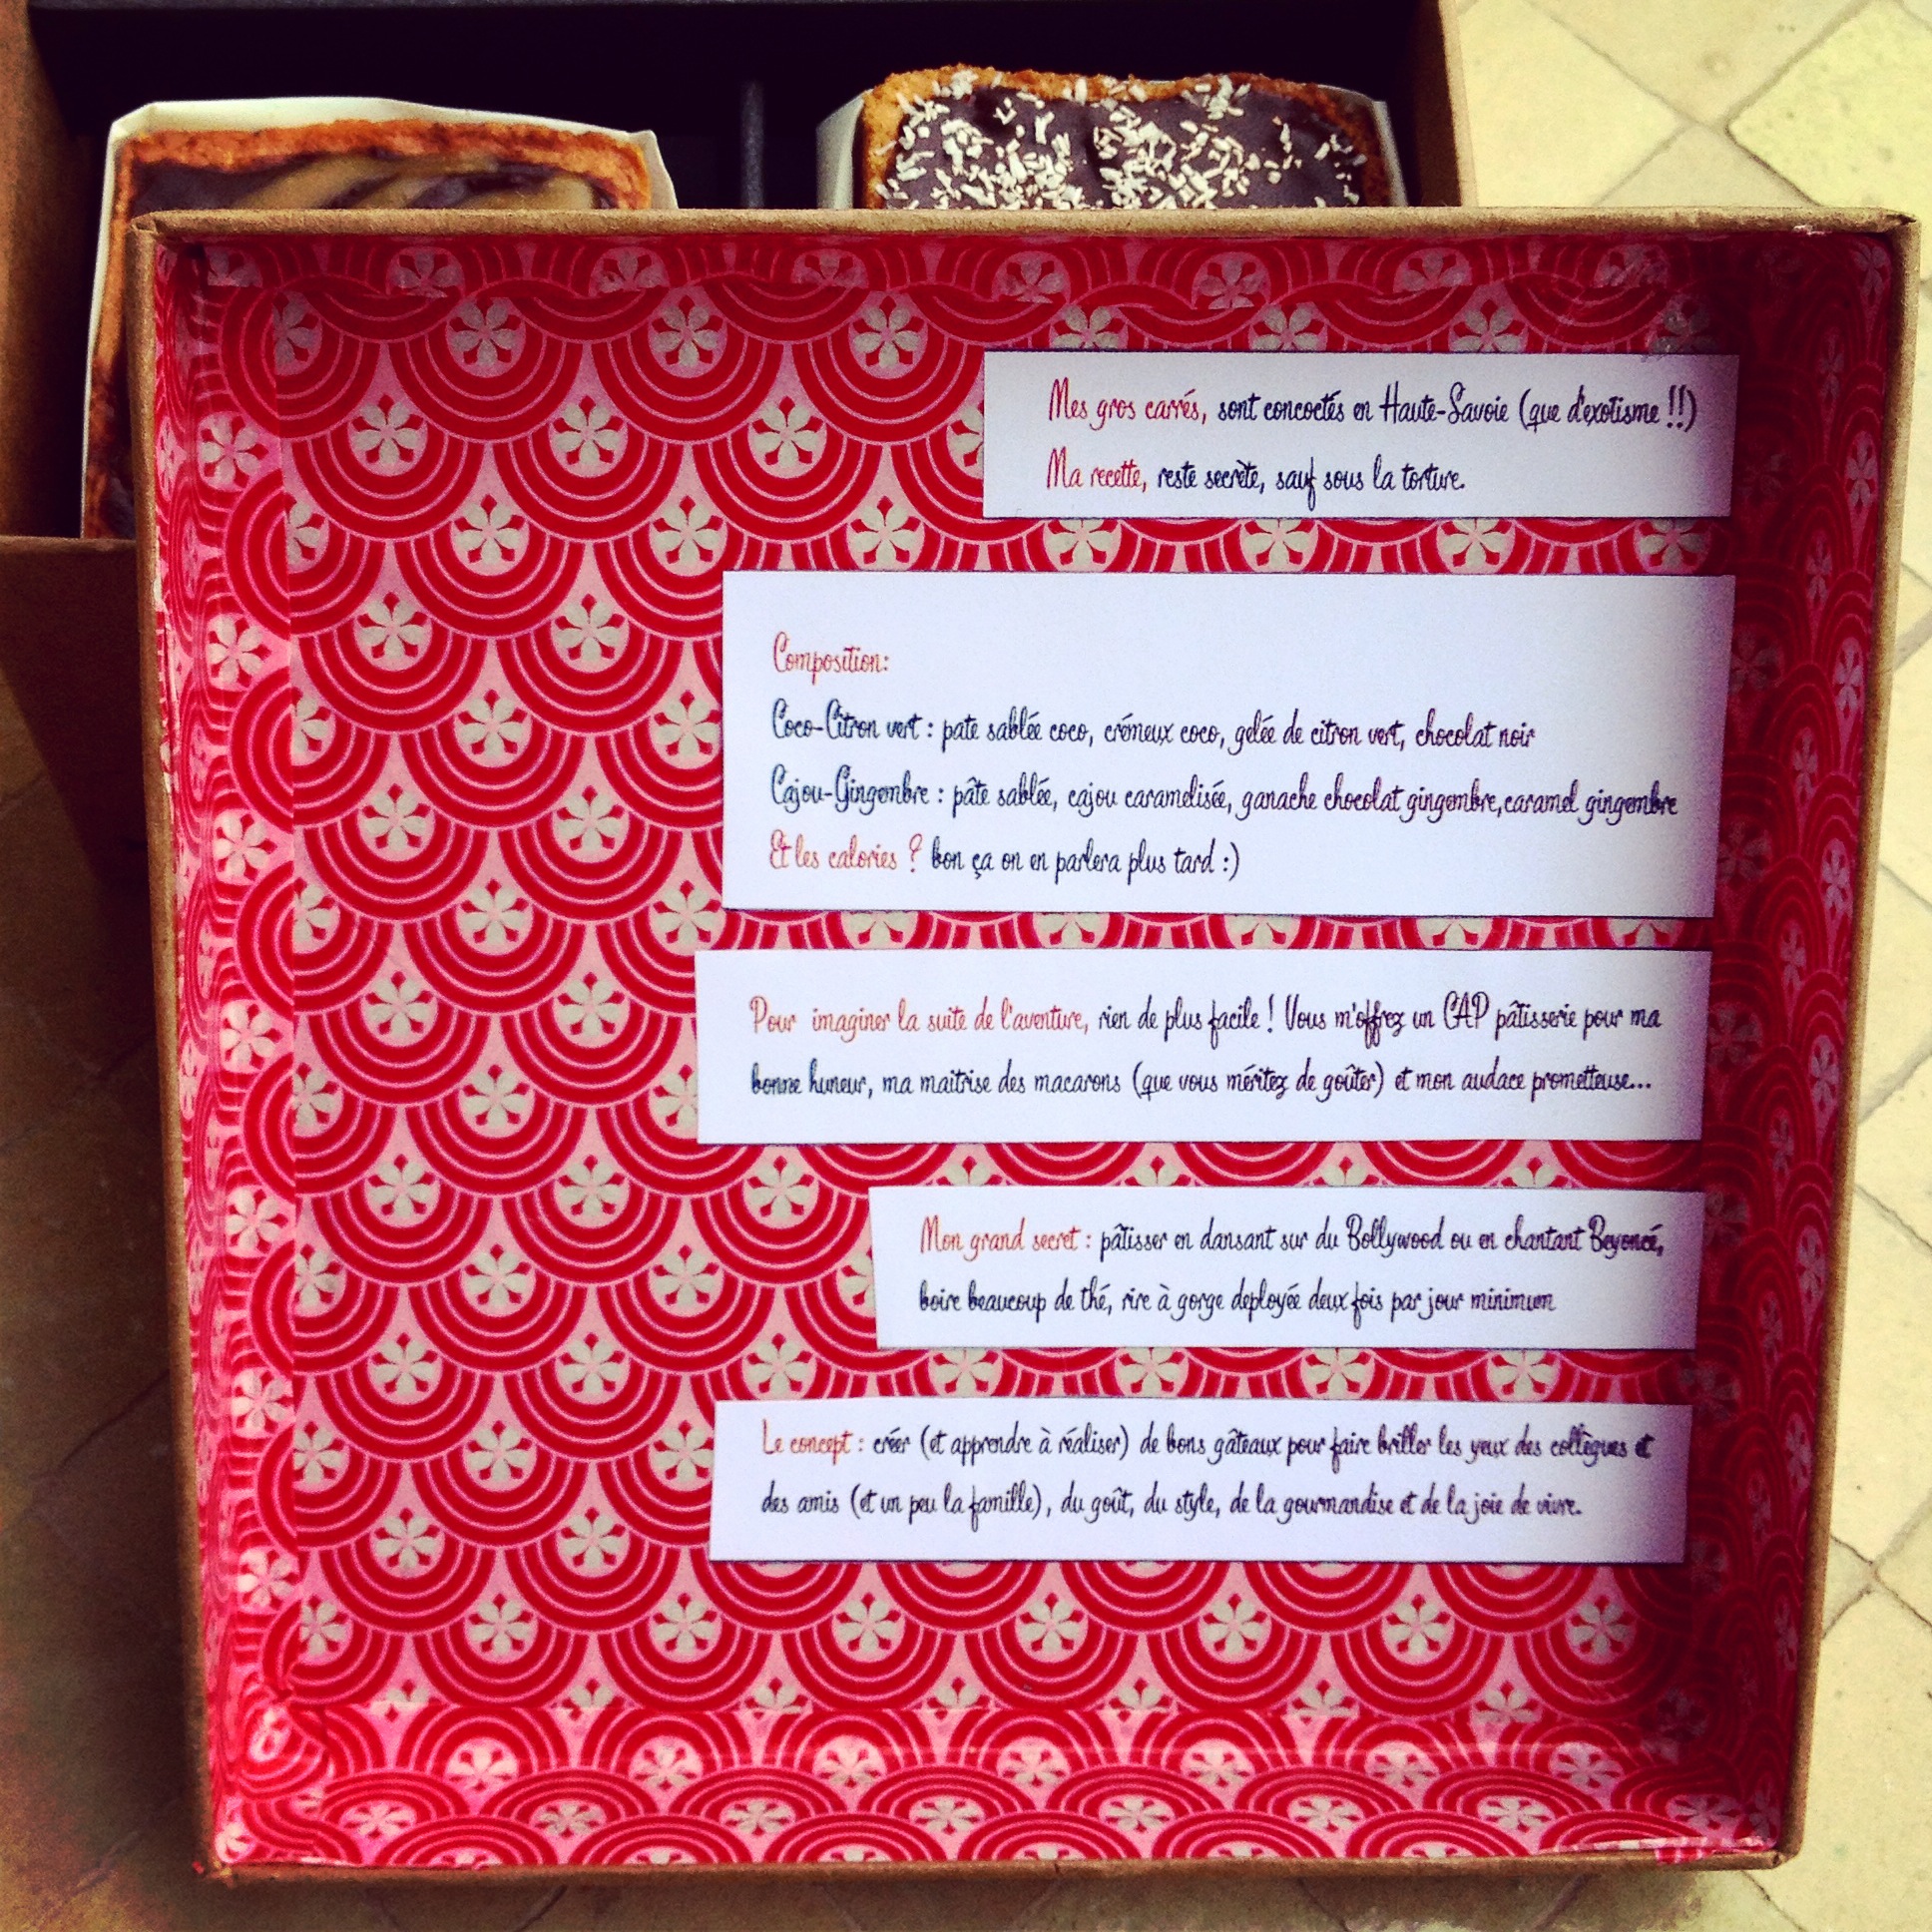 Mes gros carrés, sont concoctés en Haute-Savoie (que d'exotisme !!)
Ma recette, reste secrète, sauf sous la torture.
Composition:
Coco-Citron vert : pate sablée coco, crémeux coco, gelée de citron vert, chocolat noir
Cajou-Gingembre : pâte sablée, cajou caramelisée, ganache chocolat gingembre,caramel gingembre
Et les calories ? bon ça on en parlera plus tard :)
Pour imaginer la suite de l'aventure, rien de plus facile ! Vous m'offrez un CAP pâtisserie pour ma
bonne humeur, ma maitrise des macarons (que vous méritez de goûter) et mon audace prometteuse...
Mon grand secret : pâtisser en dansant sur du Bollywood ou en chantant Beyoncé,
boire beaucoup de thé, rire à gorge deployée deux fois par jour minimum
Le concept : créer (et apprendre à réaliser) de bons gâteaux pour faire briller les yeux des collègues et
des amis (et un peu la famille), du goût, du style, de la gourmandise et de la joie de vivre.